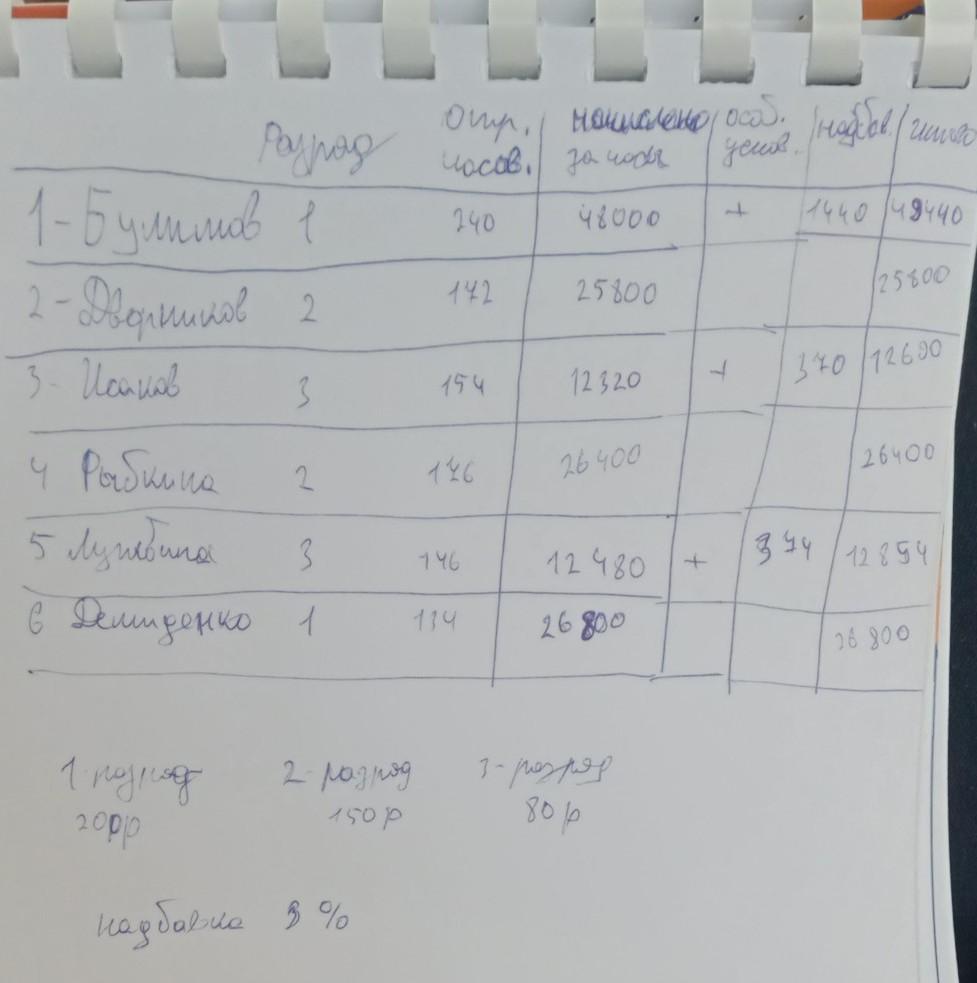 Разряд Отр. часов. начислено за часы особ. услов. надбав. итого
1-Булимов 1 240 48000 + 1440 49440
2-Дворников 2 172 25800 25800
3-Исаков 3 154 12320 + 370 12690
4 Рыбкина 2 176 26400 26400
5 3 146 12480 + 374 12854
6 Демиденко 1 134 26800 26800
1-разряд 2-разряд 3-разряд
200р 150р 80р
надбавка 3%